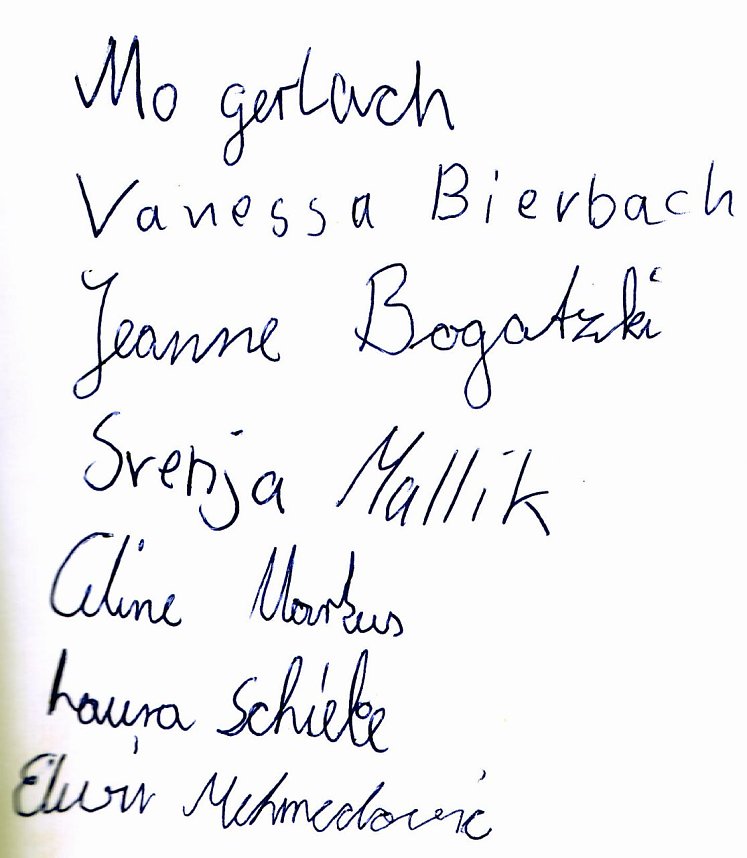 Mo gerlach
Vanessa Bierbach
Jeanne Bogatzki
Svenja Mallik
Celine Markus
Laura Schieke
Elwir Mehmedović